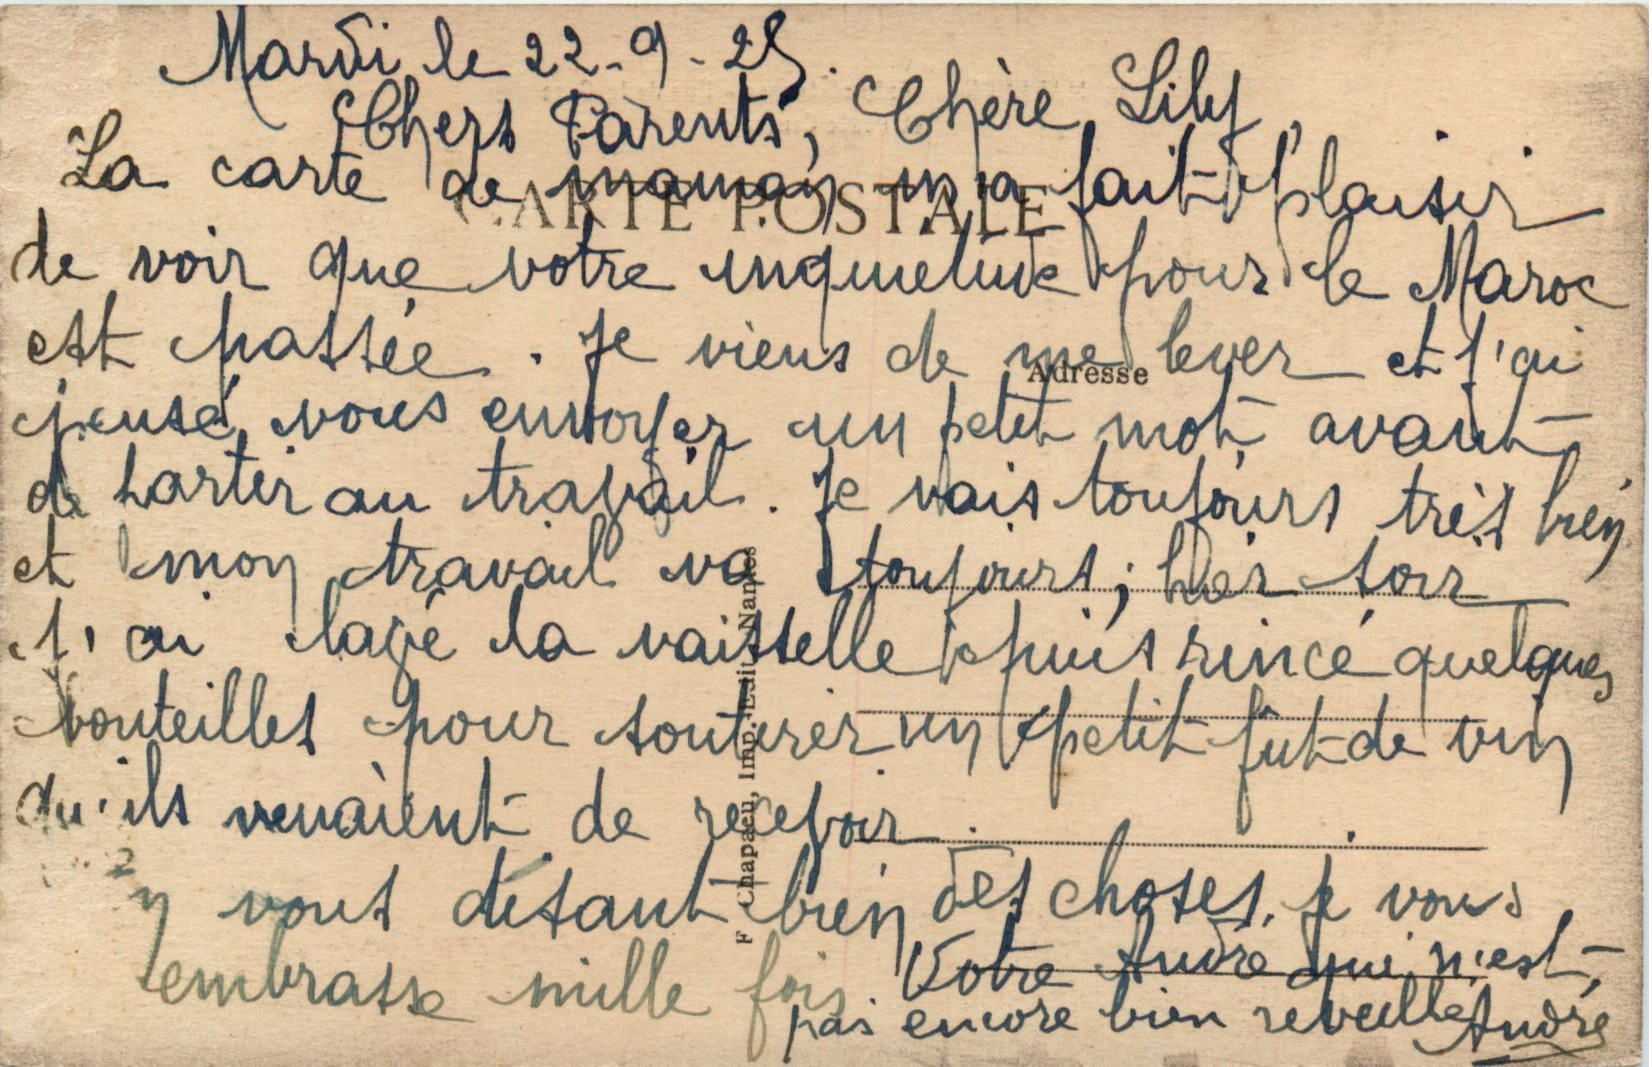 Mardi le 22-9-25.
Chers Parents, Chère Lily,
La carte de maman m'a fait plaisir
CARTE POSTALE
de voir que votre inquietude pour le Maroc
est passée. Je viens de me lever et j'ai
Adresse
pensé vous envoyer un petit mot avant
de partir au travail. Je vais toujours très bien
et mon travail va toujours; hier soir
j'ai lavé la vaisselle puis rincé quelques
bouteilles pour soutirer un petit fût de vin
qu'ils venaient de recevoir.
F Chapaeu, Imp. Edit. Nantes
En vous disant bien des choses, je vous
embrasse mille fois. Votre André qui n'est
pas encore bien reveillé André